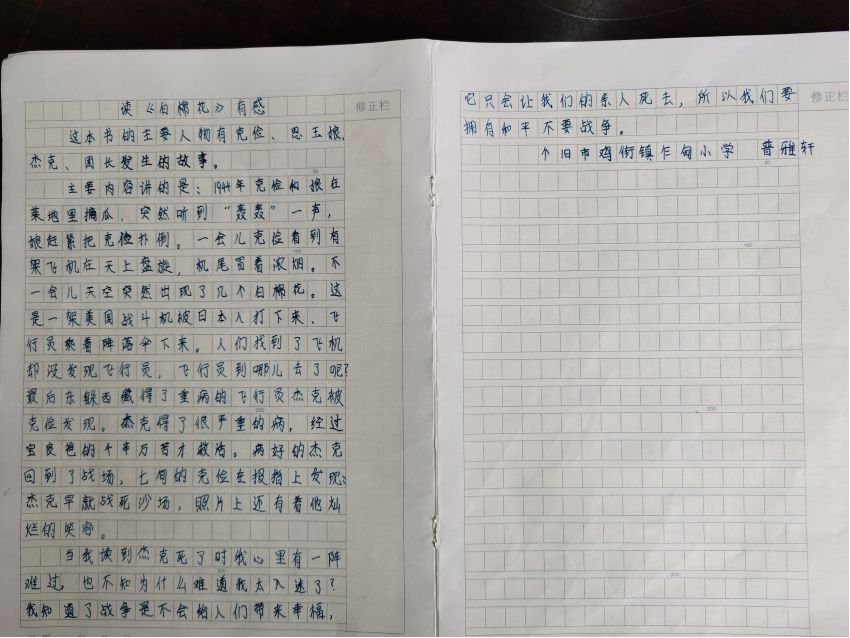 读《白棉花》有感
修正栏
这本书的主要人物有克俭、思玉娘、
杰克、团长发生的故事。
主要内容讲的是：1944年克俭和娘在
菜地里摘瓜，突然听到“轰轰”一声，
娘赶紧把克俭扑倒。一会儿克俭看到有
架飞机在天上盘旋，机尾冒着浓烟。不
一会儿天空突然出现了几个白棉花。这
是一架美国战斗机被日本人打下来，飞
行员乘着降落伞下来。人们找到了飞机
却没发现飞行员，飞行员到哪儿去了呢？
最后东躲西藏得了重病的飞行员杰克被
克俭发现。杰克得了很严重的病，经过
宝良爸的千辛万苦才救活。病好的杰克
回到了战场，七旬的克俭在报指上发现：
杰克早就战死沙场，照片上还有着他灿
烂的笑容。
当我读到杰克死了时我心里有一阵
难过，也不知为什么难道我太入迷了？
我知道了战争是不会给人们带来幸福，
它只会让我们的亲人死去，所以我们要
修正栏
拥有和平不要战争。
个旧市鸡街镇乍甸小学 普雅轩
100
200
300